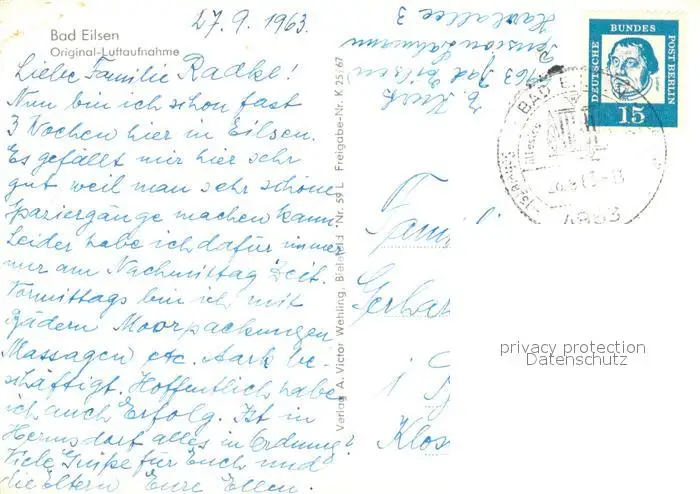 27.9.1963.
Bad Eilsen
Original-Luftaufnahme
Liebe Familie Radke!
Nun bin ich schon fast
3 Wochen hier in Eilsen.
Es gefällt mir hier sehr
gut weil man sehr schöne
Spaziergänge machen kann.
Leider habe ich dafür immer
nur am Nachmittag Zeit.
Vormittags bin ich mit
Bädern Moorpackungen
Massagen etc. stark be-
schäftigt. Hoffentlich habe
ich auch Erfolg. Ist in
Hermsdorf alles in Ordnung?
Viele Grüße für Euch und
die Eltern Eure Ellen.
Verlag A. Victor Wehling, Bielefeld Nr. 59 L Freigabe-Nr. K 25/67
3063 Bad Eilsen
3
DEUTSCHE BUNDES POST BERLIN
15
BAD EILSEN
Famil
Gerhar
1
Klos
privacy protection
Datenschutz